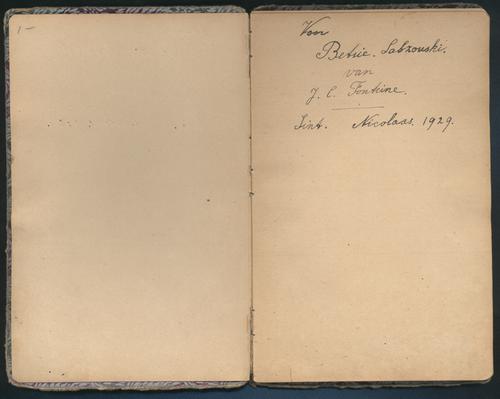 1-
Voor
Betsie. Labzouski.
van
J. C. Fonteine.
Sint. Nicolaas. 1929.